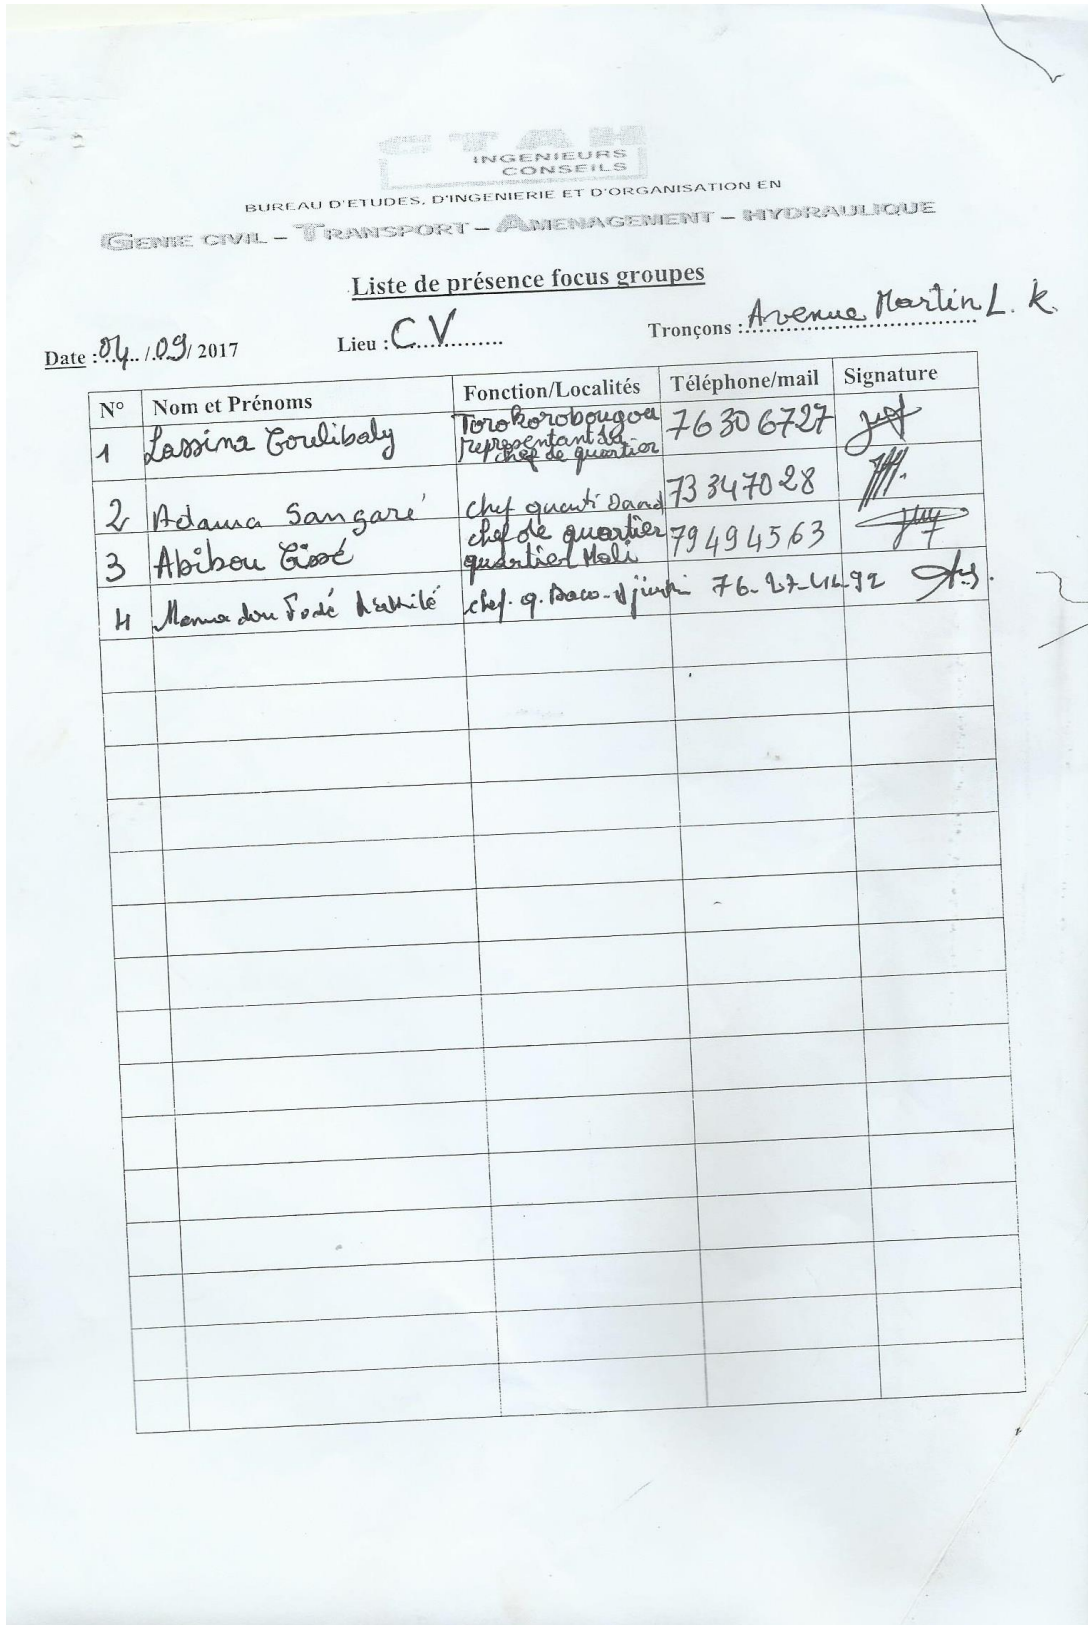 CTAH
INGENIEURS
CONSEILS
BUREAU D'ETUDES, D'INGENIERIE ET D'ORGANISATION EN
GENIE CIVIL – TRANSPORT – AMENAGEMENT – HYDRAULIQUE
Liste de présence focus groupes
Date : 04 / 09 / 2017 Lieu : C.V Tronçons : Avenue Martin L. K.
N° Nom et Prénoms Fonction/Localités Téléphone/mail Signature
1 Lassina Coulibaly Torokorobougou 76 30 67 27
représentant du
chef de quartier
2 Adama Sangaré chef quarti 73 34 70 28
3 Abibou Cissé chef de quartier 79 49 45 63
quartier Mali
4 Mamadou chef. q. Baco-Djicoroni 76-27-44-92